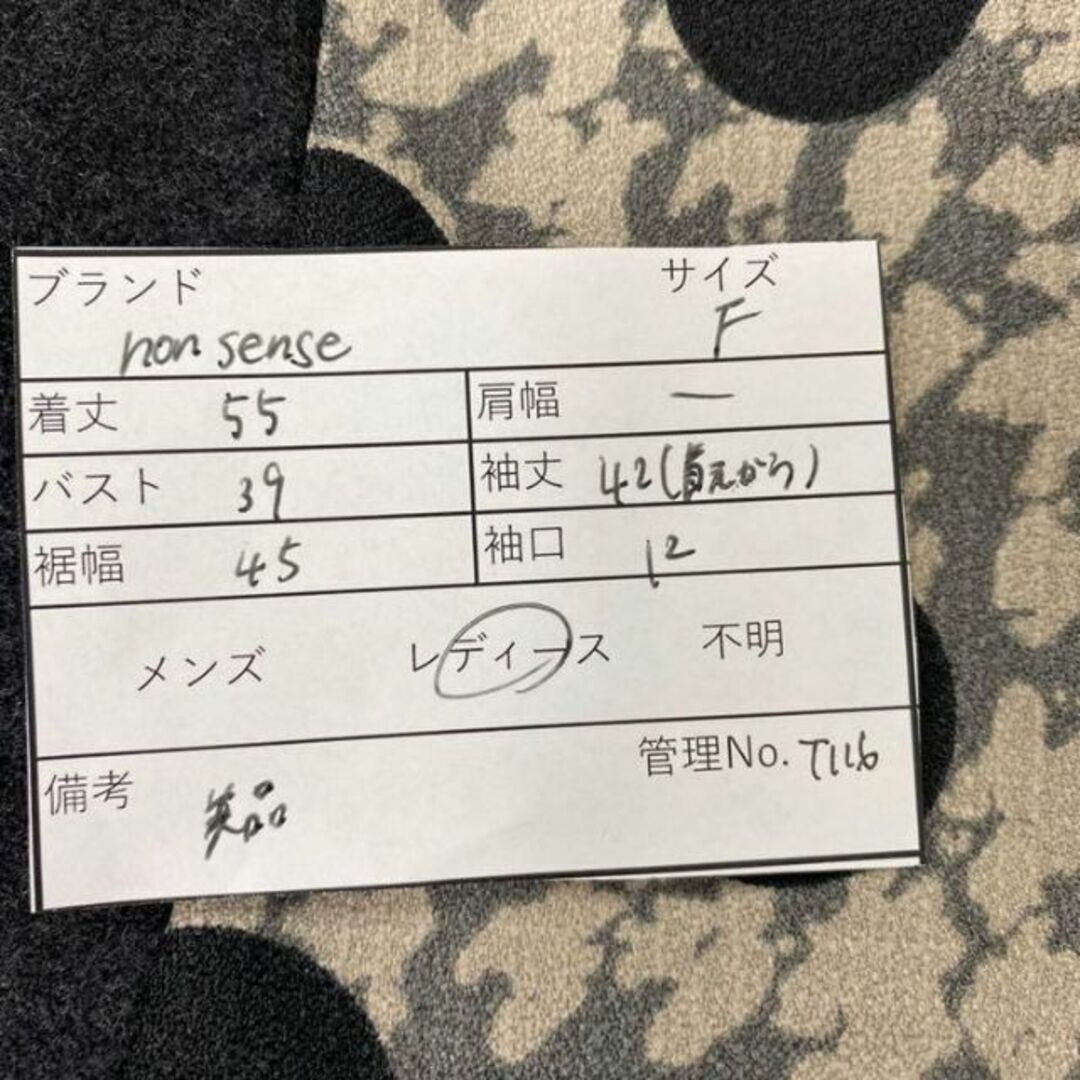 ブランド サイズ
non sense F
着丈 55 肩幅 ー
バスト 39 袖丈 42(首元から)
裾幅 45 袖口 12
メンズ レディース 不明
備考 美品 管理No. T116